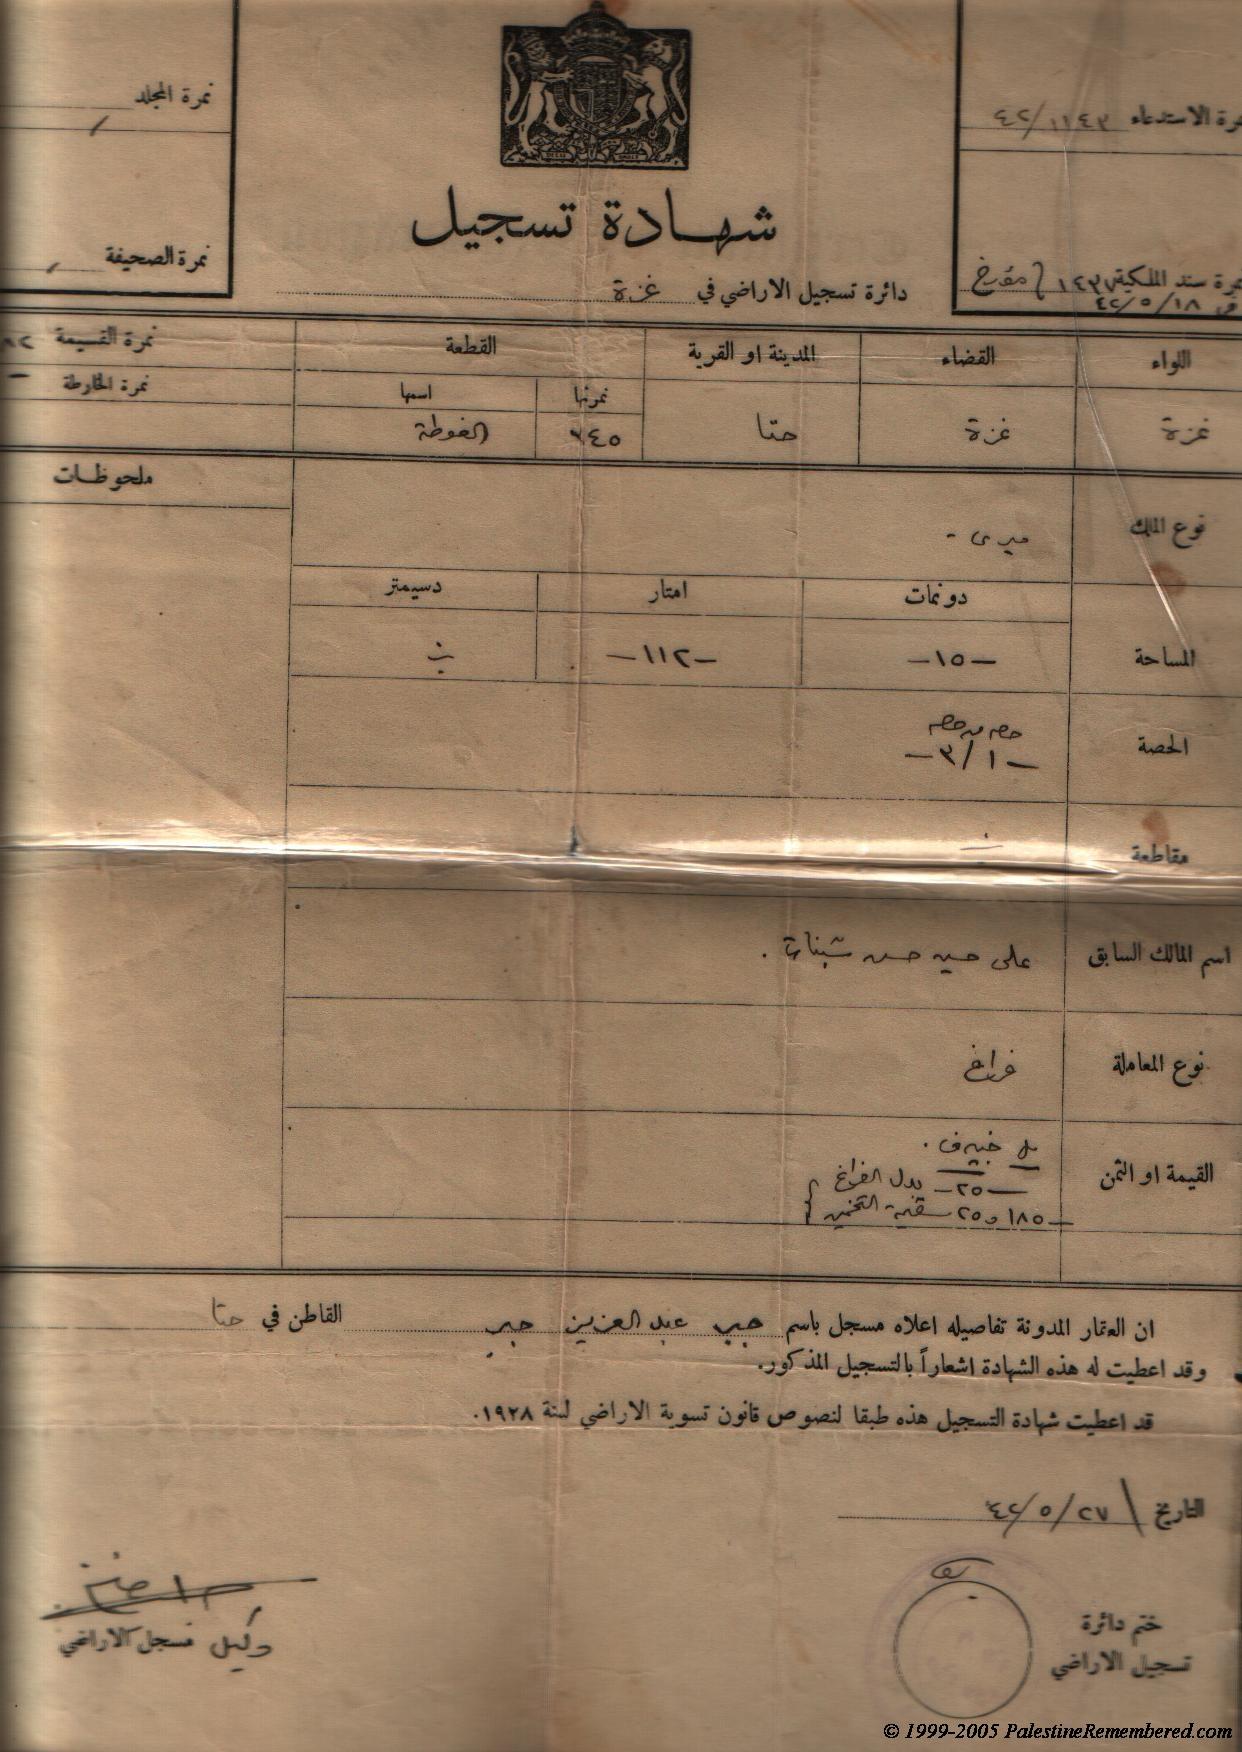 نمرة المجلد
نمرة الاستدعاء ١١٤٣/٤٢
شهادة تسجيل
نمرة الصحيفة
نمرة سند الملكية مؤرخ
في ١٨/٥/٤٢
دائرة تسجيل الاراضي في غزة
اللواء القضاء المدينة او القرية القطعة نمرة القسيمة
نمرتها اسمها نمرة الخارطة
غزة غزة حتا ٦٤٥ الغوطة
ملحوظات
نوع الملك ميرى -
دونمات امتار دسيمتر
المساحة -١٥- -١١٢-
الحصة حصه من حصه
-٣/١-
مقاطعة
اسم المالك السابق على حسين حسن شبانات .
نوع المعاملة فراغ
القيمة او الثمن
-٢٥- بدل الفراغ
-١٨٥ و٢٥ التخمين
ان العقار المدونة تفاصيله اعلاه مسجل باسم عبد العزيز القاطن في حتا
وقد اعطيت له هذه الشهادة اشعاراً بالتسجيل المذكور.
قد اعطيت شهادة التسجيل هذه طبقا لنصوص قانون تسوية الاراضي لسنة ١٩٢٨.
التاريخ ٢٧/٥/٤٢
ختم دائرة
تسجيل الاراضي
وكيل مسجل الاراضي
© 1999-2005 PalestineRemembered.com